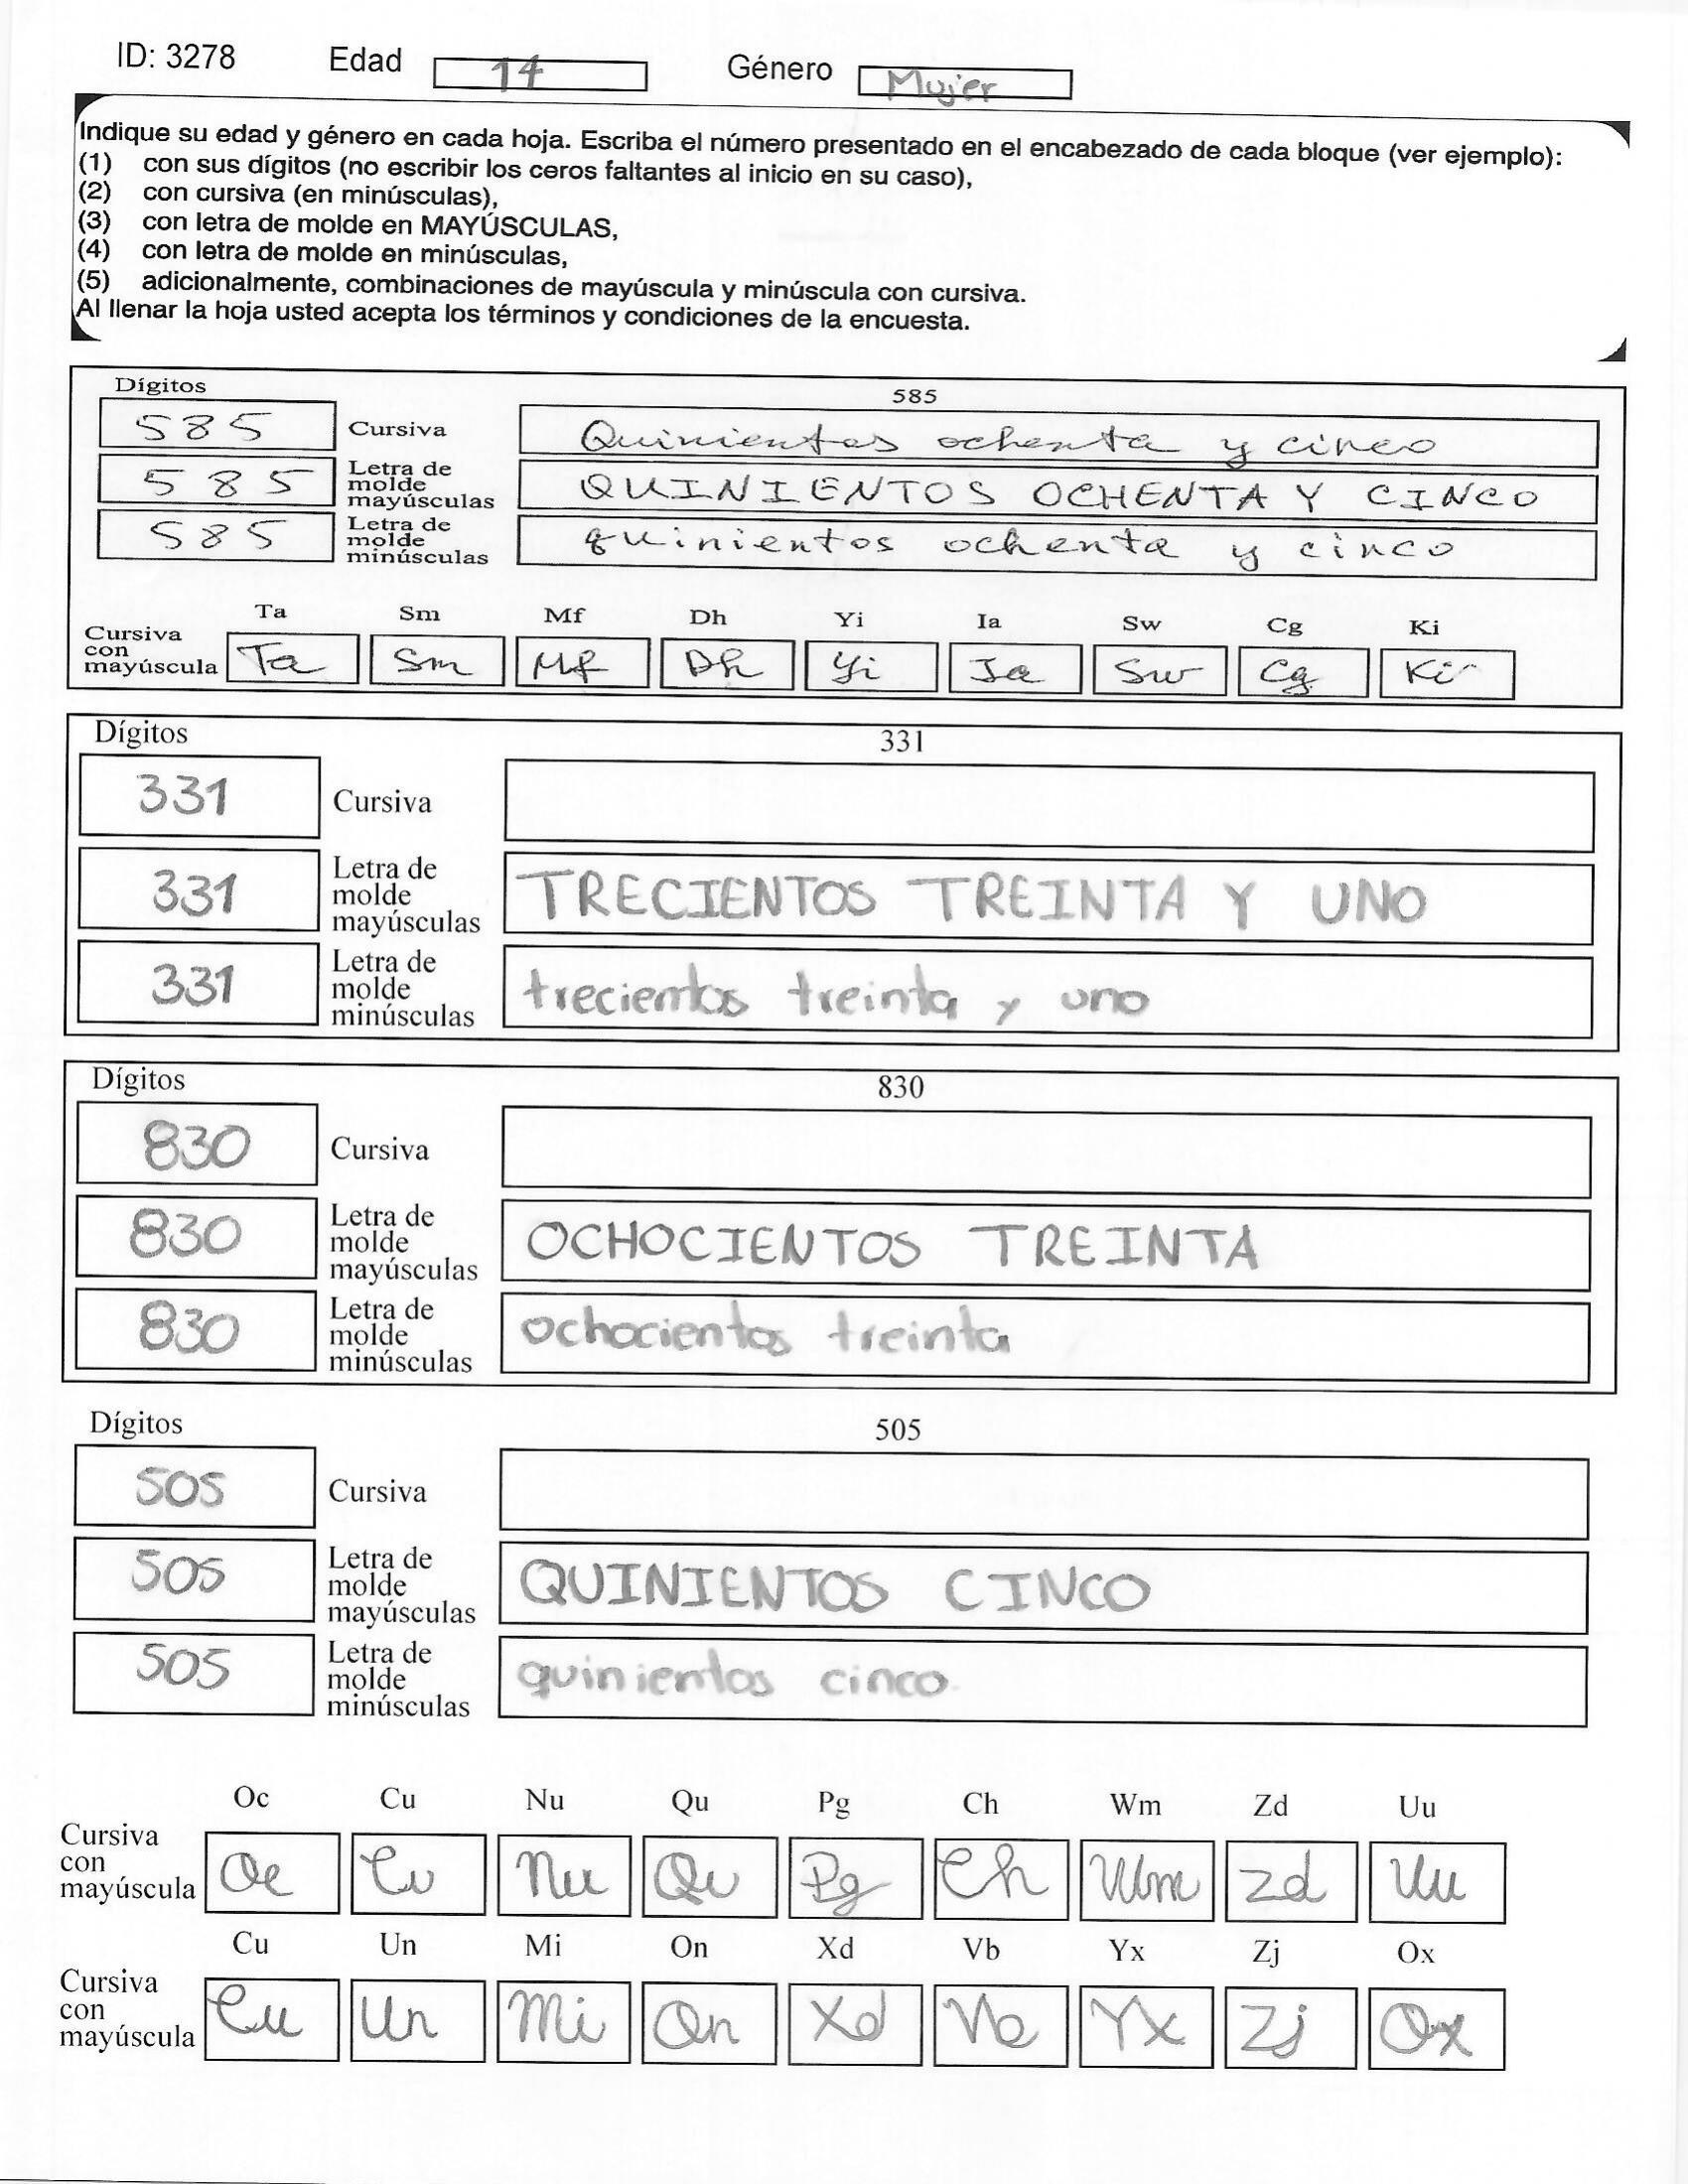 ID: 3278 Edad 14 Género Mujer
Indique su edad y género en cada hoja. Escriba el número presentado en el encabezado de cada bloque (ver ejemplo):
(1) con sus dígitos (no escribir los ceros faltantes al inicio en su caso),
(2) con cursiva (en minúsculas),
(3) con letra de molde en MAYÚSCULAS,
(4) con letra de molde en minúsculas,
(5) adicionalmente, combinaciones de mayúscula y minúscula con cursiva.
Al llenar la hoja usted acepta los términos y condiciones de la encuesta.
Dígitos 585
585 Cursiva Quinientos ochenta y cinco
585 Letra de molde mayúsculas QUINIENTOS OCHENTA Y CINCO
585 Letra de molde minúsculas quinientos ochenta y cinco
Ta Sm Mf Dh Yi Ia Sw Cg Ki
Cursiva con mayúscula Ta Sm Mf Dh Yi Ia Sw Cg Ki
Dígitos 331
331 Cursiva
331 Letra de molde mayúsculas TRECIENTOS TREINTA Y UNO
331 Letra de molde minúsculas trecientos treinta y uno
Dígitos 830
830 Cursiva
830 Letra de molde mayúsculas OCHOCIENTOS TREINTA
830 Letra de molde minúsculas ochocientos treinta
Dígitos 505
505 Cursiva
505 Letra de molde mayúsculas QUINIENTOS CINCO
505 Letra de molde minúsculas quinientos cinco
Oc Cu Nu Qu Pg Ch Wm Zd Uu
Cursiva con mayúscula Oc Cu Nu Qu Pg Ch Wm Zd Uu
Cu Un Mi On Xd Vb Yx Zj Ox
Cursiva con mayúscula Cu Un Mi On Xd Vb Yx Zj Ox